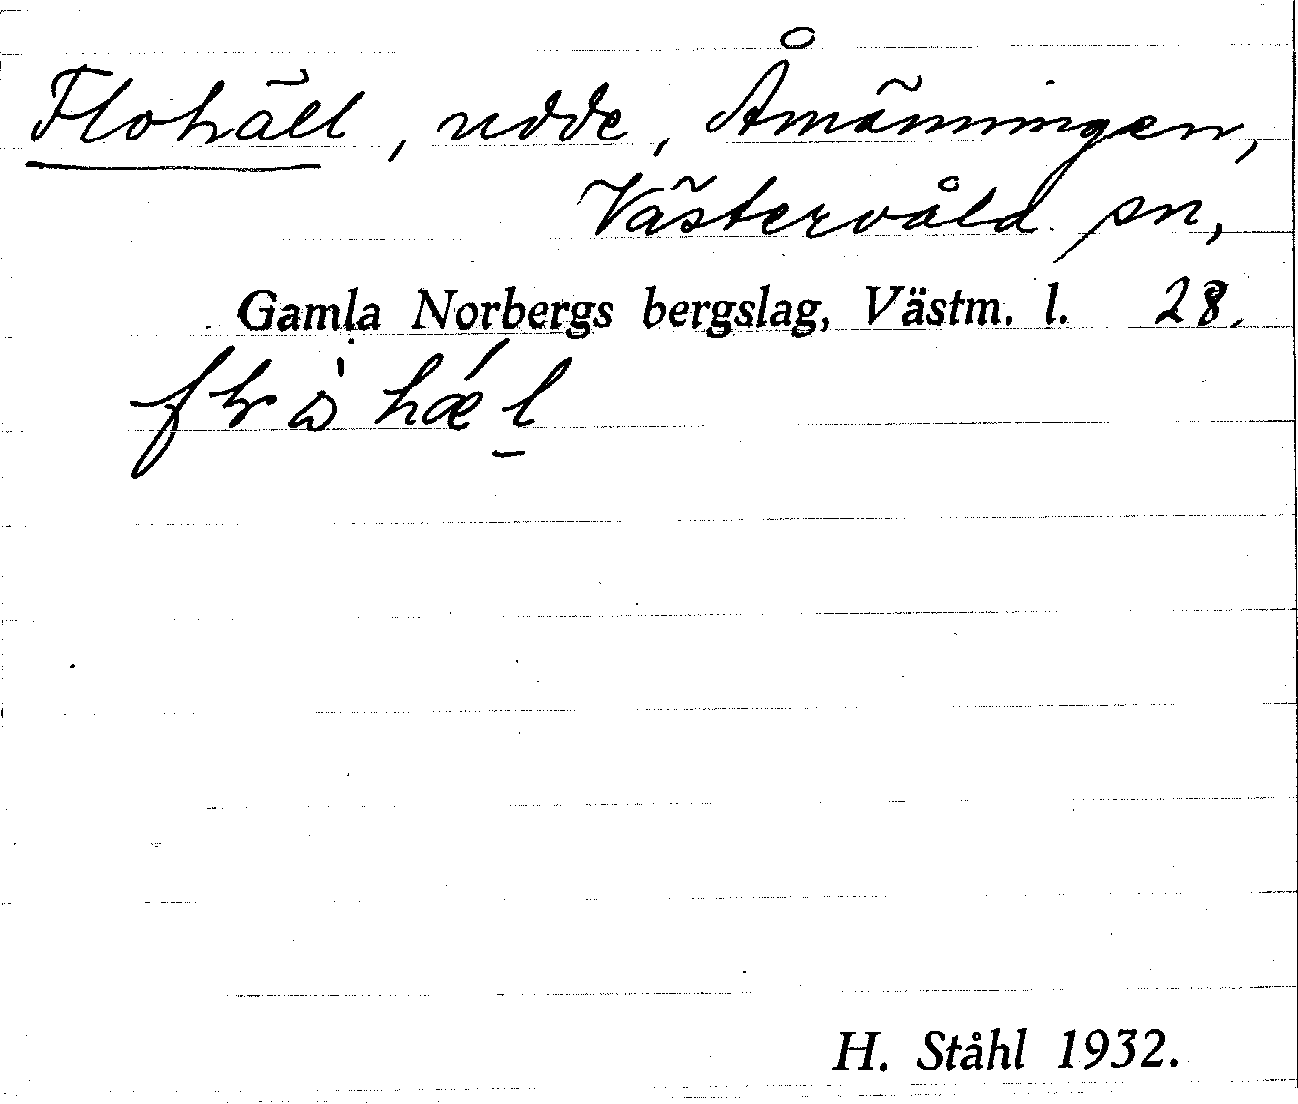 Flohäll, udde, Åmänningen,
Västervåla sn,
Gamla Norbergs bergslag, Västm. l. 28.
H. Ståhl 1932.